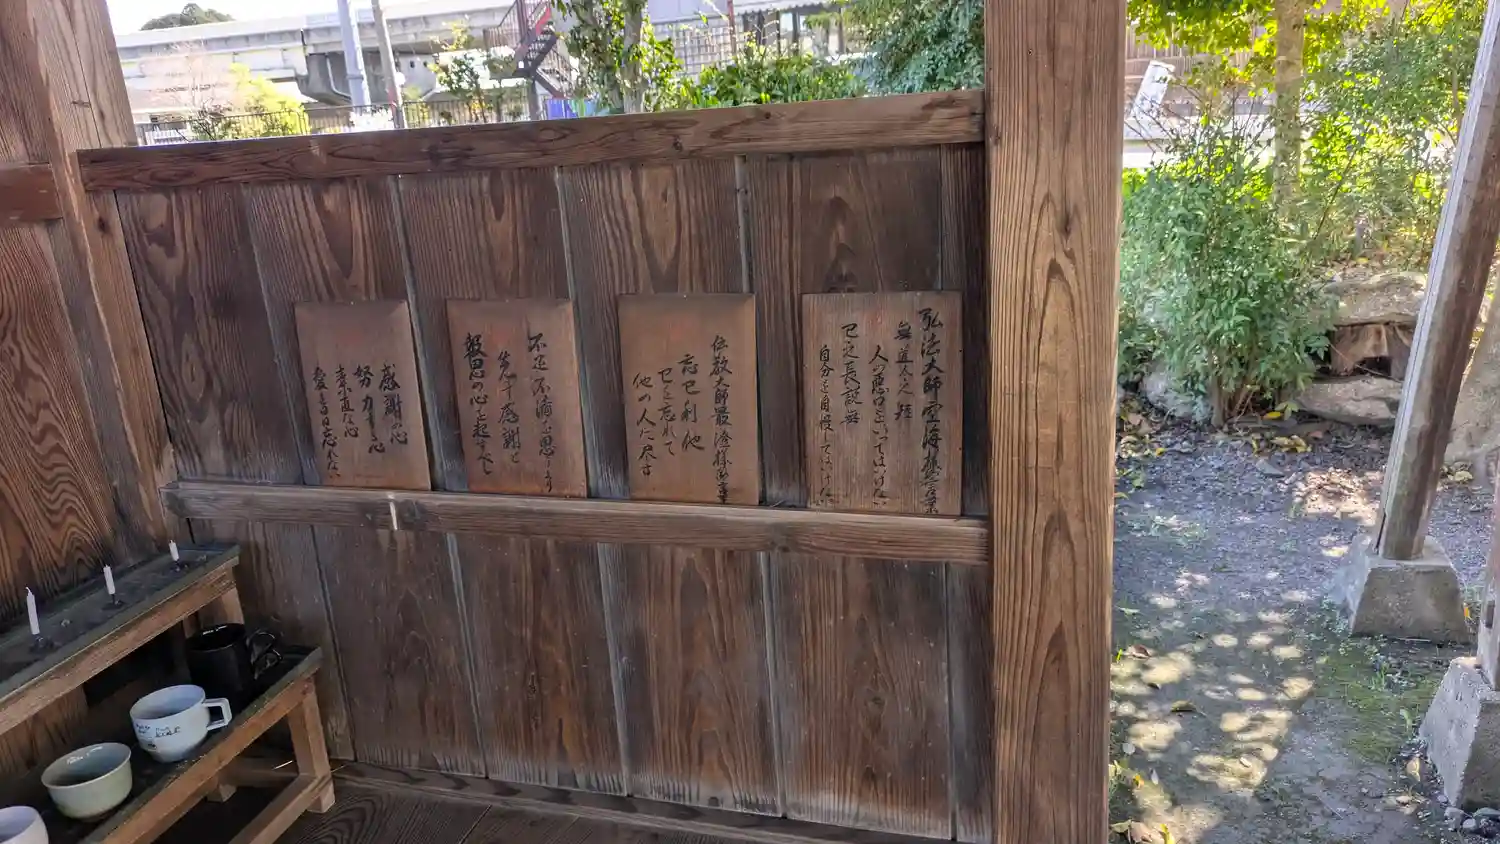 弘法大師空海様
無道人之短
人の悪口をいってはいけない
己之長説無
自分を自慢してはいけない
伝教大師最澄様
忘己利他
己を忘れて
他の人に尽す
不足不満の思いより
先ず感謝と
報恩の心を起すべし
感謝の心
努力する心
素直な心
今日も忘れない